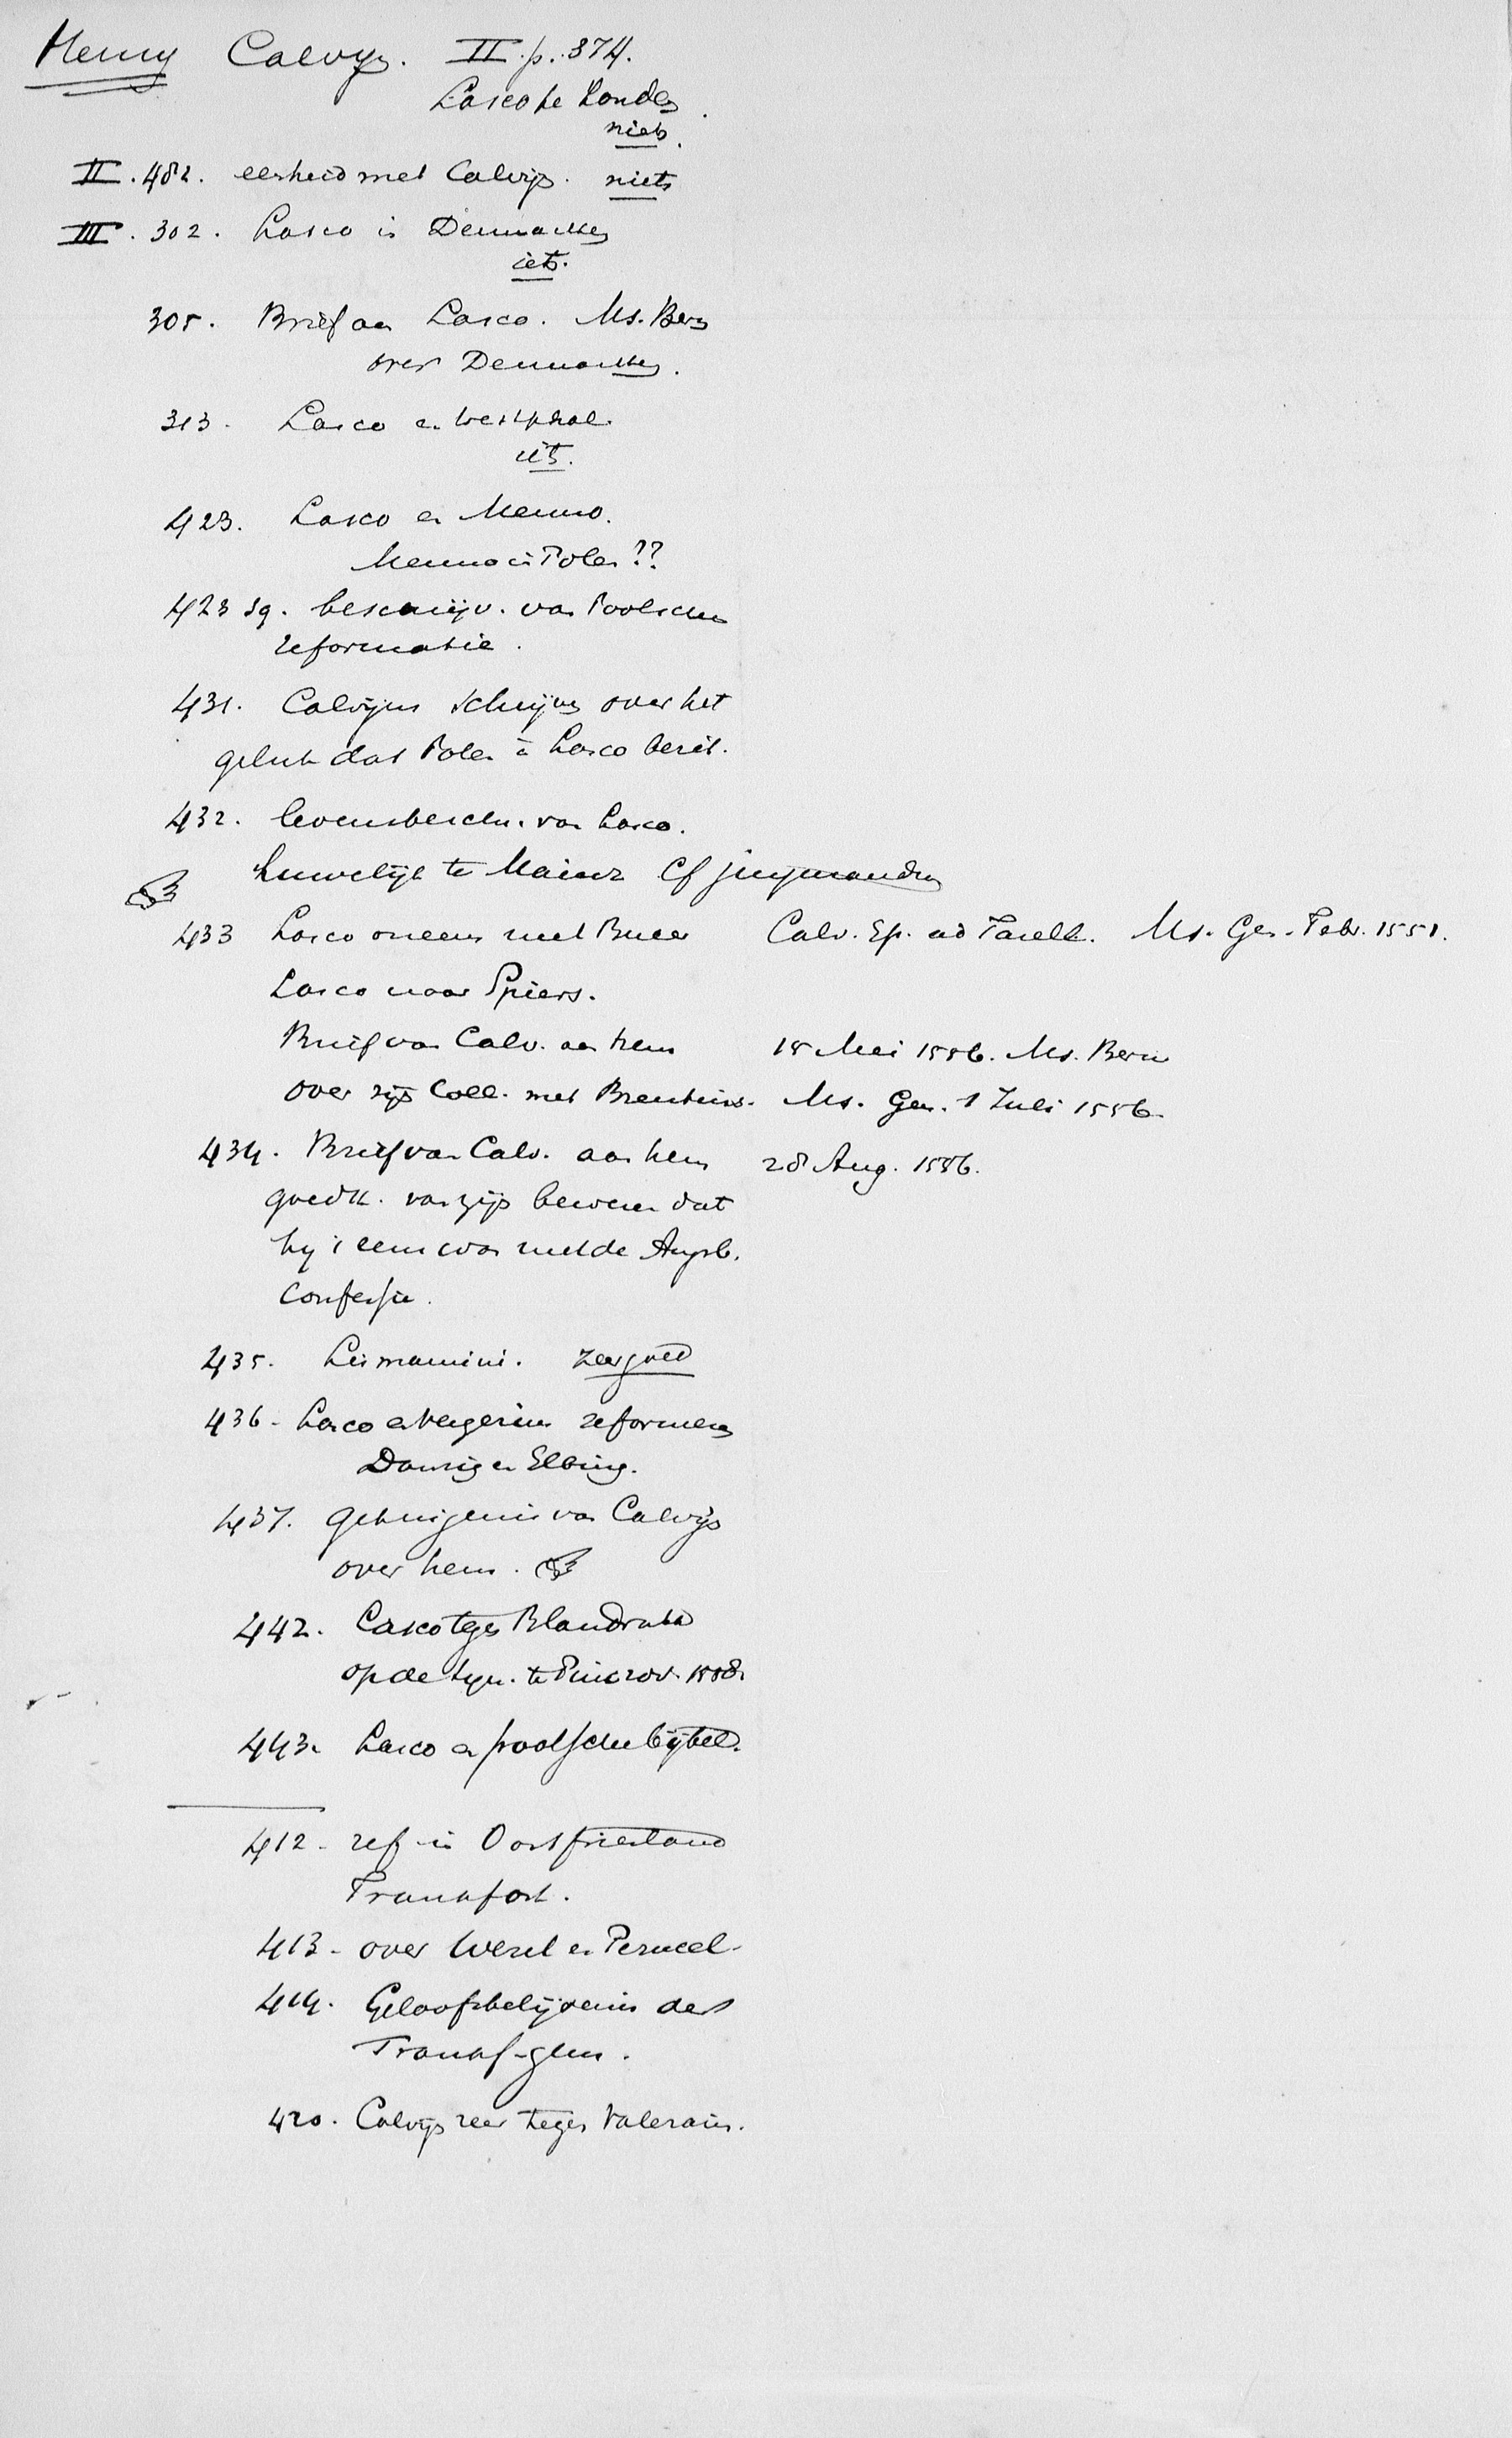 Henry Calvyn. II. p. 374.
Lasco te Londen.
niets.
II. 482. eenheid met Calvijn. niets
III. 302. Lasco in Denmarken
iets.
305. Brief aan Lasco. Ms. Bern
over Denmarken.
313. Lasco en Westphal.
iets.
423. Lasco en Menno.
Menno in Polen??
423 sq. beschrijv. van Poolschen
reformatie.
431. Calvijns schrijven over het
geluk dat Polen in Lasco bezit.
432. levensbeschr. van Lasco.
huwelijk te Mainz Cf
433 Lasco oneens met Bucer Calv. Ep. ad Farell. Ms. Gen. Febr. 1551.
Lasco naar Spiers.
Brief van Calv. aan hem 18 Mei 1556. Ms. Bern
over zijn Coll. met Brentius. Ms. Gen. 1 Juli 1556.
434. Brief van Calv. aan hem 28 Aug. 1556.
goedk. van zijn beweren dat
hij 't eens was met de Augsb.
Confessie.
435. Lismanini. zeer goed
436. Lasco en Vergerius reformeren
Danzig en Elbing.
437. getuigenis van Calvijn
over hem.
442. Lasco tegen Blandrata
op de syn. te Pinczov. 1558.
443. Lasco en poolschen bijbel.
412. ref in Oostfriesland
Frankfort.
413. over Wesel en Perucel.
414. Geloofsbelijdenis der
Frankf. gem.
420. Calvijn zeer tegen Valerain.